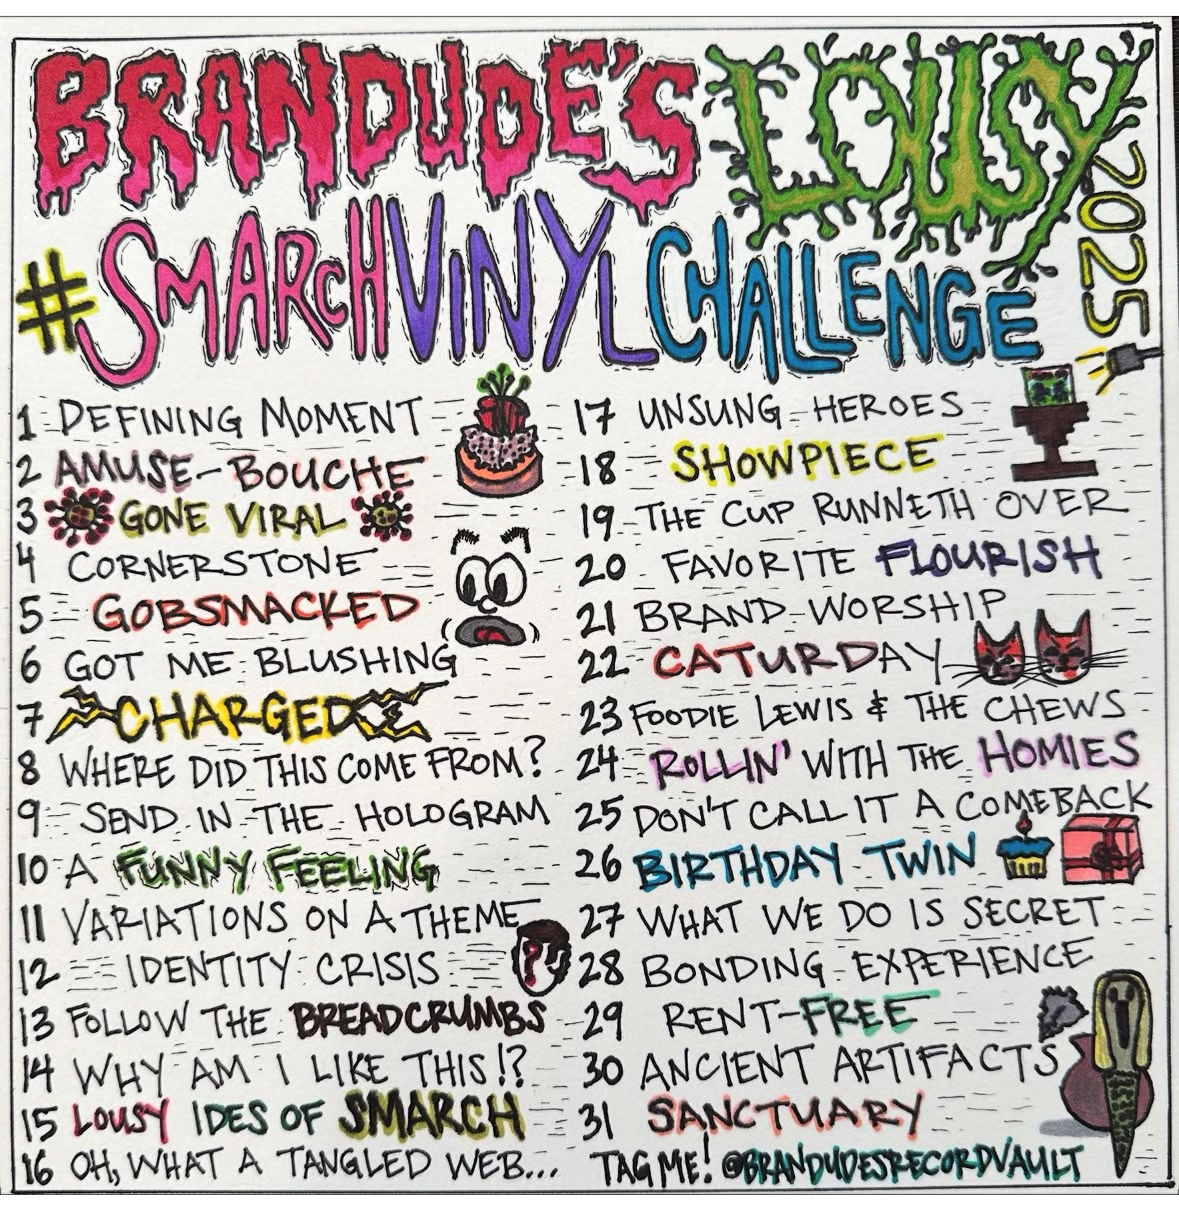 BRANDUDE'S LOUSY
#SMARCHVINYL CHALLENGE 2025
1 DEFINING MOMENT
2 AMUSE-BOUCHE
3 GONE VIRAL
4 CORNERSTONE
5 GOBSMACKED
6 GOT ME BLUSHING
7 CHARGED
8 WHERE DID THIS COME FROM?
9 SEND IN THE HOLOGRAM
10 A FUNNY FEELING
11 VARIATIONS ON A THEME
12 IDENTITY CRISIS
13 FOLLOW THE BREADCRUMBS
14 WHY AM I LIKE THIS!?
15 LOUSY IDES OF SMARCH
16 OH, WHAT A TANGLED WEB...
17 UNSUNG HEROES
18 SHOWPIECE
19 THE CUP RUNNETH OVER
20 FAVORITE FLOURISH
21 BRAND WORSHIP
22 CATURDAY
23 FOODIE LEWIS & THE CHEWS
24 ROLLIN' WITH THE HOMIES
25 DON'T CALL IT A COMEBACK
26 BIRTHDAY TWIN
27 WHAT WE DO IS SECRET
28 BONDING EXPERIENCE
29 RENT-FREE
30 ANCIENT ARTIFACTS
31 SANCTUARY
TAG ME! @BRANDUDESRECORDVAULT